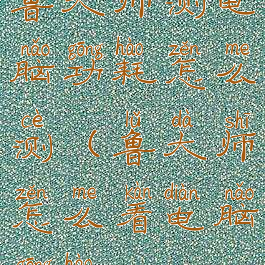 鲁大师测电
nǎo gōng hào zěn me
脑功耗怎么
cè lǔ dà shī
测(鲁大师
zěn me kàn diàn nǎo
怎么看电脑
gōng hào